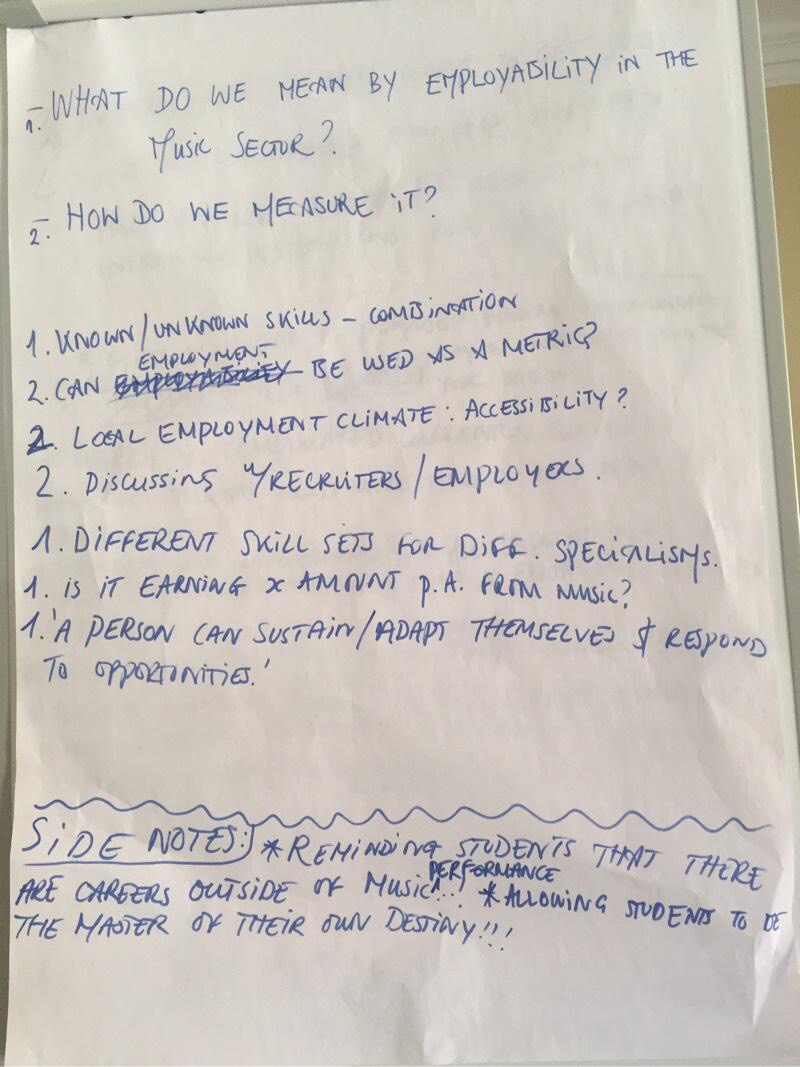 1. WHAT DO WE MEAN BY EMPLOYABILITY IN THE
MUSIC SECTOR?
2. HOW DO WE MEASURE IT?
1. KNOWN/UNKNOWN SKILLS - COMBINATION
EMPLOYMENT
2. CAN EMPLOYABILITY BE USED AS A METRIC?
2. LOCAL EMPLOYMENT CLIMATE: ACCESSIBILITY?
2. DISCUSSING W/RECRUITERS/EMPLOYERS.
1. DIFFERENT SKILL SETS FOR DIFF. SPECIALISMS.
1. IS IT EARNING X AMOUNT P.A. FROM MUSIC?
1. 'A PERSON CAN SUSTAIN/ADAPT THEMSELVES & RESPOND
TO OPPORTUNITIES.'
SIDE NOTES: *REMINDING STUDENTS THAT THERE
PERFORMANCE
ARE CAREERS OUTSIDE OF MUSIC^...! *ALLOWING STUDENTS TO BE
THE MASTER OF THEIR OWN DESTINY!!!